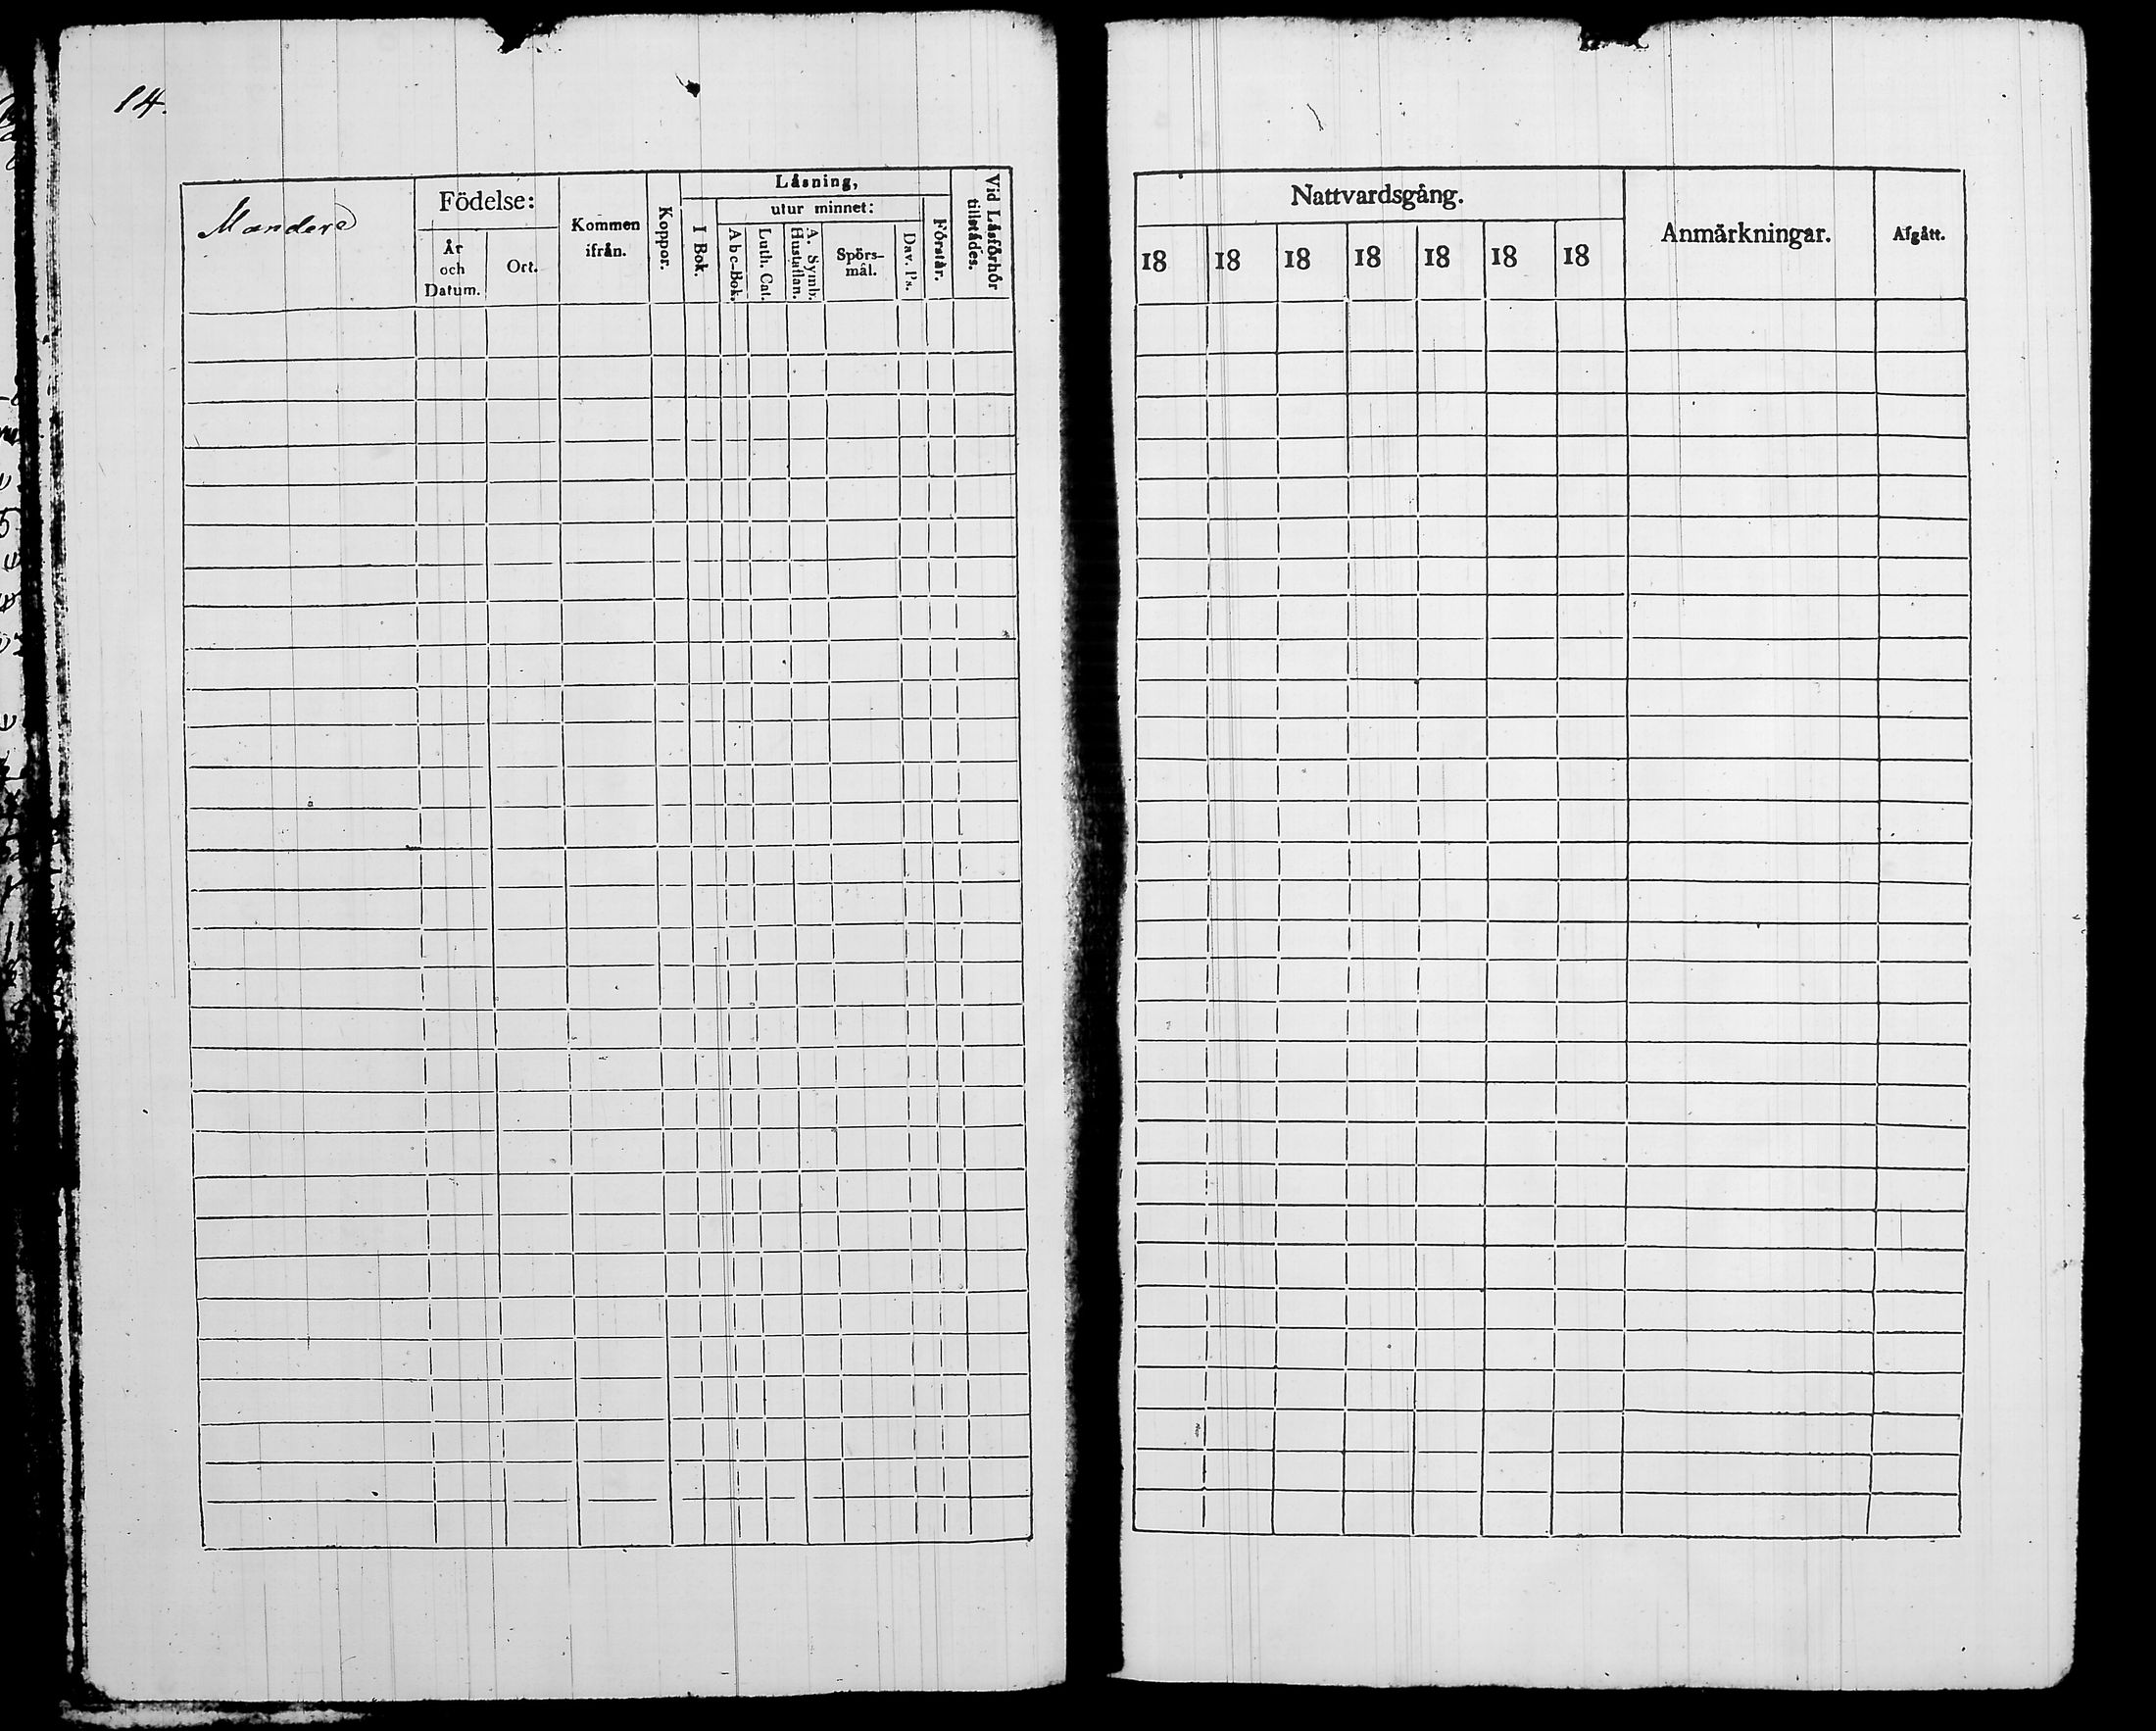 14.
Mandere
Födelse:
År
och
Datum.
Ort.
Kommen
ifrån.
Koppor.
Låsning,
I Bok.
utur minnet:
Abc-Bok.
Luth. Cat.
A. Symb.
Hustaflan.
Spörs-
mål.
Dav. Ps.
Förstår.
Vid Låsförhör
tillstådes.
Nattvardsgång.
18 18 18 18 18 18 18
Anmärkningar.
Afgått.